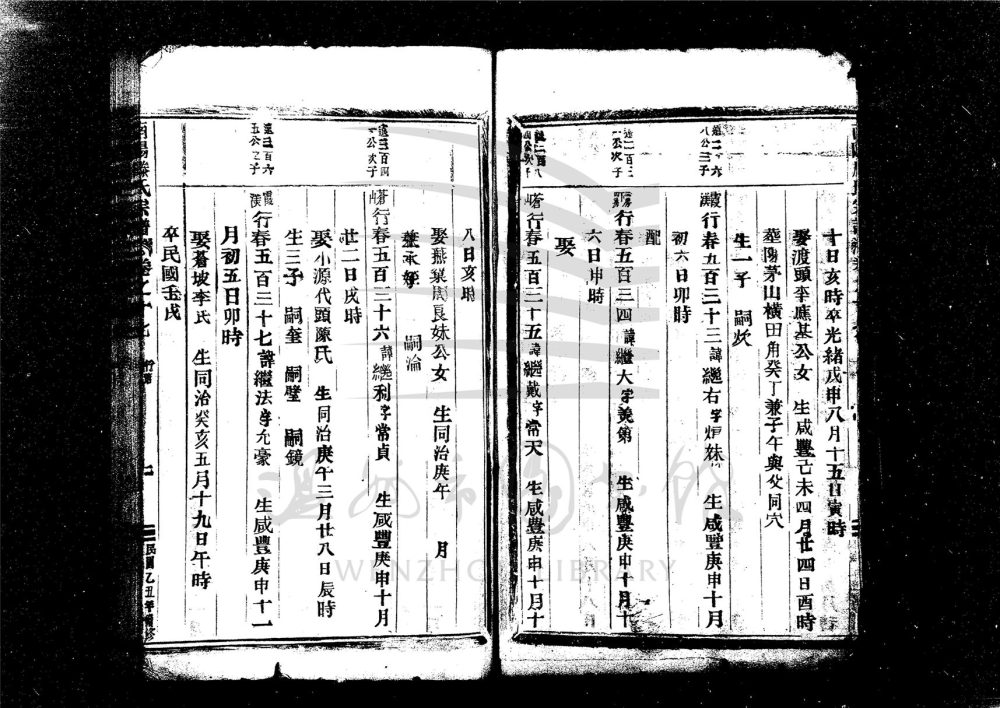 十日亥時卒光緒戊申八月十五日寅時
娶渡頭李應基公女 生咸豐己未四月廿四日酉時
塟陽茅山橫田角癸丁兼子午與父同穴
生一子 嗣炊
公三子
霞行春五百三十三諱繼右字炬妹 生咸豐庚申十月
初六日卯時
配
公次子
行春五百三四諱繼大字美第 生咸豐庚申十月十
六日申時
娶
公次子
蒼行春五百三十五諱繼戴字常天 生咸豐庚申十月十
八日亥時
娶蓀巢周良妹公女 生同治庚午 月
嗣淪
遠三百四
公次子
蒼行春五百三十六諱繼利字常貞 生咸豐庚申十月
廿二日戌時
娶小源代頭陳氏 生同治庚午三月廿八日辰時
生三子 嗣奎 嗣壁 嗣鏡
遠三百六
五公之子
霞行春五百三十七諱繼法字允豪 生咸豐庚申十一
月初五日卯時
娶蒼坡李氏 生同治癸亥五月十九日午時
卒民國壬戌
南陽滕氏宗譜
民國乙丑年續修
WENZHOU LIBRARY